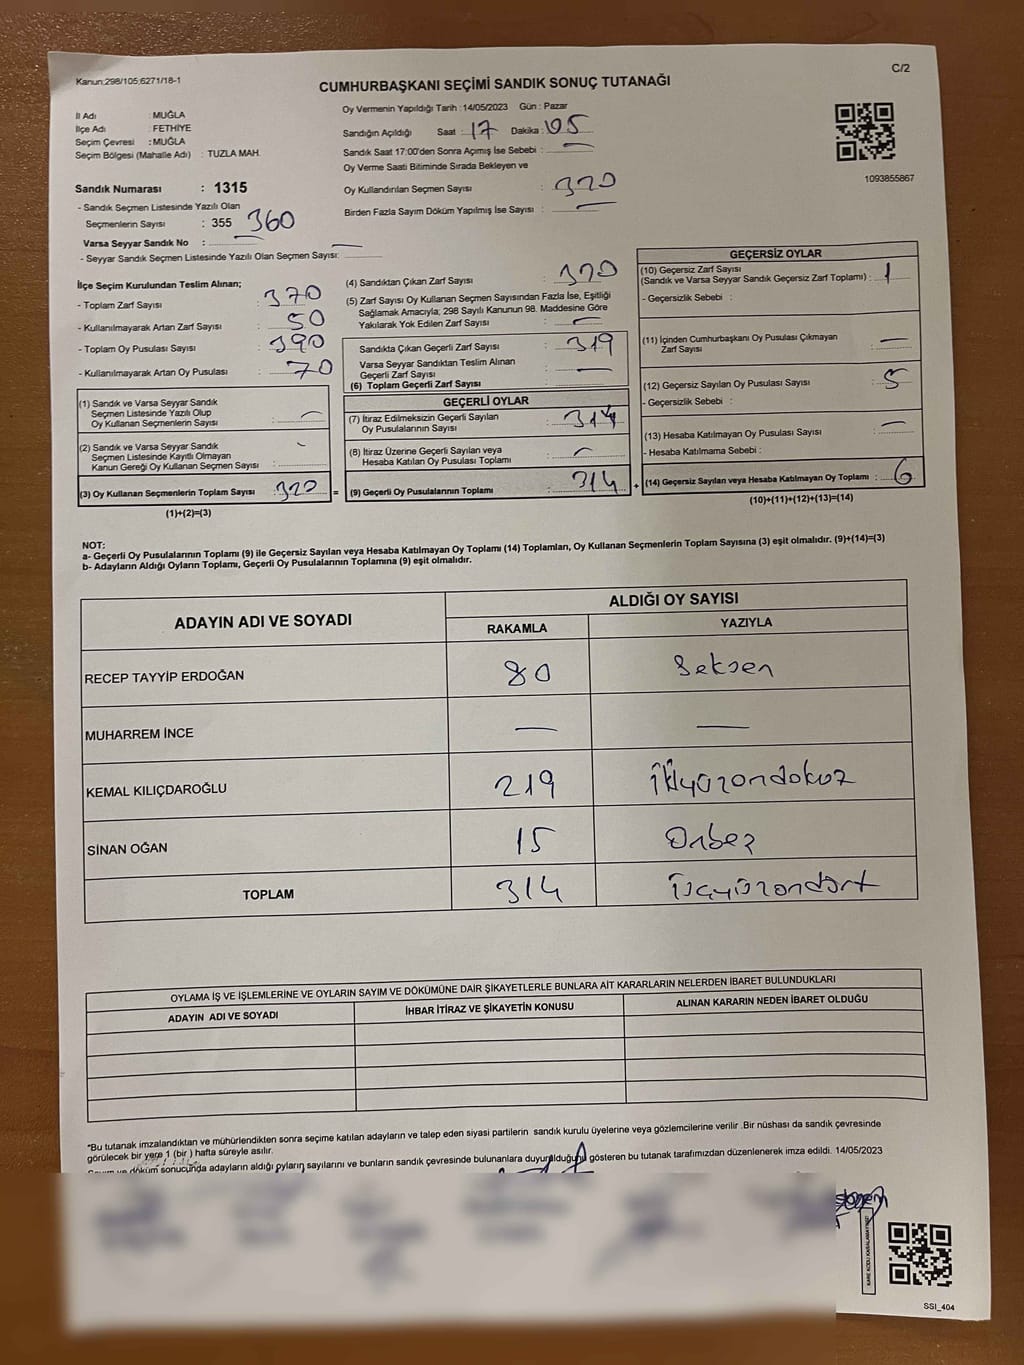 Kanun:298/105;6271/18-1
C/2
CUMHURBAŞKANI SEÇİMİ SANDIK SONUÇ TUTANAĞI
İl Adı : MUĞLA
İlçe Adı : FETHİYE
Seçim Çevresi : MUĞLA
Seçim Bölgesi (Mahalle Adı) : TUZLA MAH.
Sandık Numarası : 1315
- Sandık Seçmen Listesinde Yazılı Olan
Seçmenlerin Sayısı : 355 360
Varsa Seyyar Sandık No : —
- Seyyar Sandık Seçmen Listesinde Yazılı Olan Seçmen Sayısı: —
Oy Vermenin Yapıldığı Tarih : 14/05/2023 Gün : Pazar
Sandığın Açıldığı Saat : 17 Dakika : 05
Sandık Saat 17:00'den Sonra Açımış İse Sebebi : —
Oy Verme Saati Bitiminde Sırada Bekleyen ve
Oy Kullandırılan Seçmen Sayısı : 320
Birden Fazla Sayım Döküm Yapılmış İse Sayısı : —
1093855867
İlçe Seçim Kurulundan Teslim Alınan;
- Toplam Zarf Sayısı : 370
- Kullanılmayarak Artan Zarf Sayısı : 50
- Toplam Oy Pusulası Sayısı : 390
- Kullanılmayarak Artan Oy Pusulası : 70
(1) Sandık ve Varsa Seyyar Sandık
Seçmen Listesinde Yazılı Olup
Oy Kullanan Seçmenlerin Sayısı : —
(2) Sandık ve Varsa Seyyar Sandık
Seçmen Listesinde Kayıtlı Olmayan
Kanun Gereği Oy Kullanan Seçmen Sayısı : -
(3) Oy Kullanan Seçmenlerin Toplam Sayısı : 320
(1)+(2)=(3)
=
(4) Sandıktan Çıkan Zarf Sayısı : 320
(5) Zarf Sayısı Oy Kullanan Seçmen Sayısından Fazla İse, Eşitliği
Sağlamak Amacıyla; 298 Sayılı Kanunun 98. Maddesine Göre
Yakılarak Yok Edilen Zarf Sayısı : —
Sandıkta Çıkan Geçerli Zarf Sayısı : 319
Varsa Seyyar Sandıktan Teslim Alınan
Geçerli Zarf Sayısı : —
(6) Toplam Geçerli Zarf Sayısı :
GEÇERLİ OYLAR
(7) İtiraz Edilmeksizin Geçerli Sayılan
Oy Pusulalarının Sayısı : 314
(8) İtiraz Üzerine Geçerli Sayılan veya
Hesaba Katılan Oy Pusulası Toplamı : —
(9) Geçerli Oy Pusulalarının Toplamı : 314
+
GEÇERSİZ OYLAR
(10) Geçersiz Zarf Sayısı
(Sandık ve Varsa Seyyar Sandık Geçersiz Zarf Toplamı) : 1
- Geçersizlik Sebebi :
(11) İçinden Cumhurbaşkanı Oy Pusulası Çıkmayan
Zarf Sayısı : —
(12) Geçersiz Sayılan Oy Pusulası Sayısı : 5
- Geçersizlik Sebebi :
(13) Hesaba Katılmayan Oy Pusulası Sayısı : —
- Hesaba Katılmama Sebebi :
(14) Geçersiz Sayılan veya Hesaba Katılmayan Oy Toplamı : 6
(10)+(11)+(12)+(13)=(14)
NOT:
a- Geçerli Oy Pusulalarının Toplamı (9) ile Geçersiz Sayılan veya Hesaba Katılmayan Oy Toplamı (14) Toplamları, Oy Kullanan Seçmenlerin Toplam Sayısına (3) eşit olmalıdır. (9)+(14)=(3)
b- Adayların Aldığı Oyların Toplamı, Geçerli Oy Pusulalarının Toplamına (9) eşit olmalıdır.
ADAYIN ADI VE SOYADI
ALDIĞI OY SAYISI
RAKAMLA YAZIYLA
RECEP TAYYİP ERDOĞAN 80 Seksen
MUHARREM İNCE — —
KEMAL KILIÇDAROĞLU 219 İkiyüzondokuz
SİNAN OĞAN 15 Onbeş
TOPLAM 314 Üçyüzondört
OYLAMA İŞ VE İŞLEMLERİNE VE OYLARIN SAYIM VE DÖKÜMÜNE DAİR ŞİKAYETLERLE BUNLARA AİT KARARLARIN NELERDEN İBARET BULUNDUKLARI
ADAYIN ADI VE SOYADI İHBAR İTİRAZ VE ŞİKAYETİN KONUSU ALINAN KARARIN NEDEN İBARET OLDUĞU
*Bu tutanak imzalandıktan ve mühürlendikten sonra seçime katılan adayların ve talep eden siyasi partilerin sandık kurulu üyelerine veya gözlemcilerine verilir .Bir nüshası da sandık çevresinde
görülecek bir yere 1 (bir ) hafta süreyle asılır.
Sayım ve döküm sonucunda adayların aldığı oyların sayılarını ve bunların sandık çevresinde bulunanlara duyurulduğunu gösteren bu tutanak tarafımızdan düzenlenerek imza edildi. 14/05/2023
SSI_404